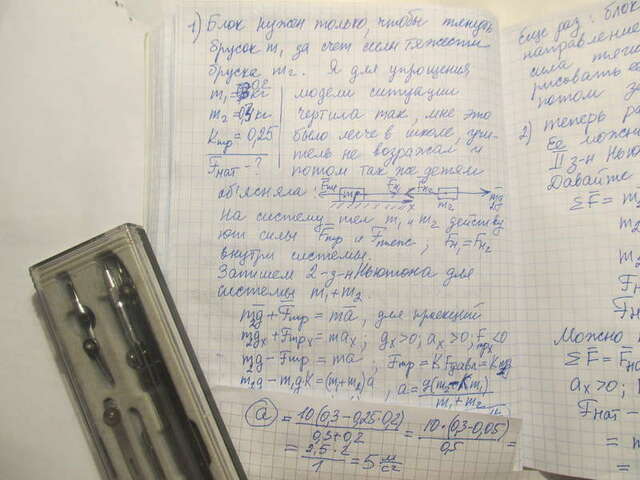 1) Блок нужен только, чтобы тянуть
брусок m₁ за счет силы тяжести
бруска m₂. Я для упрощения
m₁ = 0,2 кг модели ситуации
m₂ = 0,3 кг чертила так, мне это
Kтр = 0,25 было легче в школе, учи-
Fнат - ? тель не возражал и
потом так же детям
объясняла: Fтр m₁ Fн₁ Fн₂ m₂ m₂g
На систему тел m₁ и m₂ действу
ют силы Fтр и Fтяж ; Fн₁ = Fн₂
внутри системы.
Запишем 2-з-н Ньютона для
системы m₁+m₂.
m₂g + Fтр = ma, для проекций
m₂gx + Fтрx = max ; gx>0; ax>0; Fтрx<0
m₂g - Fтр = ma ; Fтр = K Fдавл =
m₂g - m₁gK = (m₁+m₂)a , a = g(m₂ - Km₁)/(m₁+m₂)
a = 10(0,3 - 0,25·0,2)/(0,3+0,2) = 10·(0,3-0,05)/0,5 =
= 2,5·2/1 = 5 м/с²
Еще раз: блок
направление
сила
рисовать
потом
2) теперь
Ее можно
II з-н Нью
Давайте
ΣF = m₂
m₂
m₂
Fнат
Fнат
Можно
ΣF =
ax>0;
Fнат -
= m
=